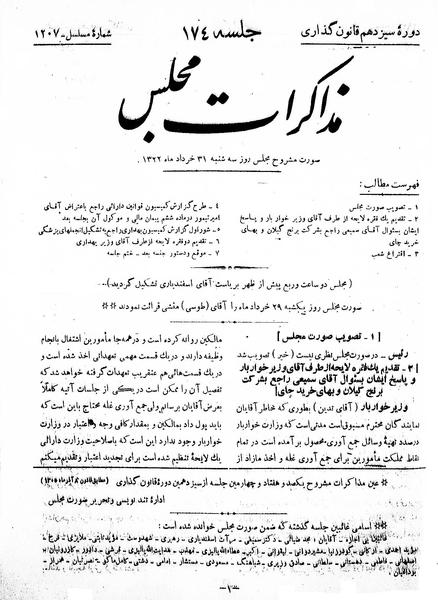 دورهٔ سیزدهم قانون‌گذاری
جلسه ۱۷۴
شمارهٔ مسلسل - ۱۲۰۷
مذاکرات مجلس
صورت مشروح مجلس روز سه شنبه ۳۱ خرداد ماه ۱۳۲۲
فهرست مطالب:
۱ - تصویب صورت مجلس
۲ - تقدیم یک فقره لایحه از طرف آقای وزیر خواربار و پاسخ
ایشان بسئوال آقای سمیعی راجع بشرکت برنج گیلان و بهای
خرید چای
۳ - اقتراع شعب
۴ - طرح گزارش کمیسیون قوانین دارائی راجع باعتراض آقای
امیرتیمور در ماده ششم پیمان مالی و موکول آن بجلسه بعد
۵ - شور اول گزارش کمیسیون بهداری راجع به تشکیل انجمنهای پزشکی
۶ - تقدیم دو فقره لایحه از طرف آقای وزیر بهداری
۷ - موقع و دستور جلسه بعد - ختم جلسه
(مجلس دو ساعت و ربع پیش از ظهر بریاست آقای اسفندیاری تشکیل گردید)
صورت مجلس روز یکشنبه ۲۹ خرداد ماه را آقای (طوسی) منشی قرائت نمودند
[ ۱ - تصویب صورت مجلس ]
رئیس - در صورت مجلس نظری نیست (خیر) تصویب شد
[ ۲ - تقدیم یک فقره لایحه از طرف آقای وزیر خواربار
و پاسخ ایشان بسئوال آقای سمیعی راجع بشرکت
برنج گیلان و بهای خرید چای ]
وزیر خواربار (آقای تدین) بطوری که خاطر آقایان
نمایندگان محترم مسبوق است مدتی است که وزارت خواربار
درصدد تهیهٔ وسائل جمع آوری محصول بر آمده است در تمام
نقاط مملکت مأمورین برای جمع آوری غله و اخذ مازاد از
مالکین روانه کرده است و در همه‌جا مأمورین اشتغال بانجام
وظیفه دارند و دریک قسمت مهمی تعهداتی اخذ شده است و
دریک قسمت‌هائی هم عنقریب تعهدات گرفته خواهد شد که
تفصیل آن را ممکن است در یکی از جلسات آتیه کاملاً
بعرض آقایان برسانم ولی جمع آوری غله محتاج باین است که
باید پول داد بمالکین و بمقدار کافی وجه و اعتبار در وزارت
خواربار وجود ندارد این است که باصلاحیت وزارت دارائی
یک لایحهٔ تنظیم شده است برای تجدید اعتبار و تقدیم میکنم
عین مذاکرات مشروح یکصد و هفتاد و چهارمین جلسه از سیزدهمین دورهٔ قانون گذاری
اداره تند نویسی و تحریر صورت مجلس
اسامی غائبین جلسه گذشته که ضمن صورت مجلس خوانده شده است: